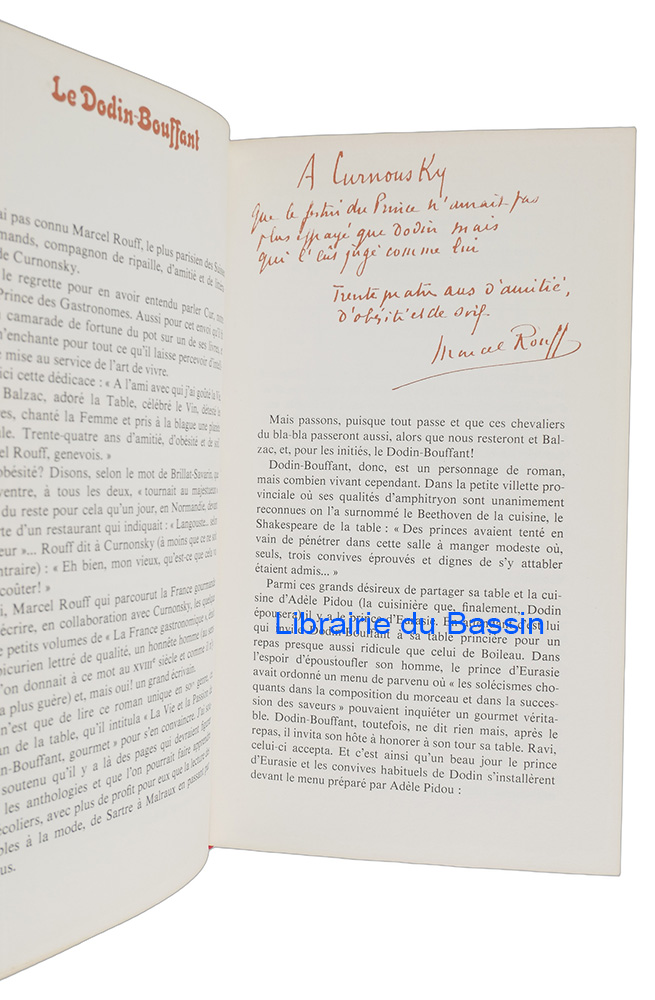 Le Dodin-Bouffant
ai pas connu Marcel Rouff, le plus parisien des Suisses
mands, compagnon de ripaille, d'amitié et de
de Curnonsky.
le regrette pour en avoir entendu parler Cur,
Prince des Gastronomes. Aussi pour cet envoi qu'il
camarade de fortune du pot sur un de ses livres,
m'enchante pour tout ce qu'il laisse percevoir
mise au service de l'art de vivre.
ici cette dédicace : « A l'ami avec qui j'ai goûté la Vie,
Balzac, adoré la Table, célébré le Vin, détesté
es, chanté la Femme et pris à la blague une planète
ule. Trente-quatre ans d'amitié, d'obésité et de soif.
el Rouff, genevois. »
obésité? Disons, selon le mot de Brillat-Savarin, que
ventre, à tous les deux, « tournait au majestueux »
du reste pour cela qu'un jour, en Normandie, devant
rte d'un restaurant qui indiquait : « Langouste... selon
eur »... Rouff dit à Curnonsky (à moins que ce ne soit
ntraire) : « Eh bien, mon vieux, qu'est-ce que cela va
coûter! »
i, Marcel Rouff qui parcourut la France gourmande
écrire, en collaboration avec Curnonsky, les quelque
petits volumes de « La France gastronomique »,
picurien lettré de qualité, un honnête homme (au sens
'on donnait à ce mot au XVIIIe siècle et comme il n'
a plus guère) et, mais oui! un grand écrivain.
n'est que de lire ce roman unique en son genre,
an de la table, qu'il intitula « La Vie et la Passion de
in-Bouffant, gourmet » pour s'en convaincre. J'ai
soutenu qu'il y a là des pages qui devraient figurer
les anthologies et que l'on pourrait faire apprendre
écoliers, avec plus de profit pour eux que la lecture de
bles à la mode, de Sartre à Malraux en passant par
us.
A Curnousky
Que le festin du Prince n'aurait pas
plus effrayé que Dodin mais
qui l'eût jugé comme lui
Trente quatre ans d'amitié,
D'obésité et de soif.
Marcel Rouff
Mais passons, puisque tout passe et que ces chevaliers
du bla-bla passeront aussi, alors que nous resteront et Bal-
zac, et, pour les initiés, le Dodin-Bouffant!
Dodin-Bouffant, donc, est un personnage de roman,
mais combien vivant cependant. Dans la petite villette pro-
vinciale où ses qualités d'amphitryon sont unanimement
reconnues on l'a surnommé le Beethoven de la cuisine, le
Shakespeare de la table : « Des princes avaient tenté en
vain de pénétrer dans cette salle à manger modeste où,
seuls, trois convives éprouvés et dignes de s'y attabler
étaient admis... »
Parmi ces grands désireux de partager sa table et la cui-
sine d'Adèle Pidou (la cuisinière que, finalement, Dodin
épousera) il y a le prince d'Eurasie. Et c'est lui
qui invite Dodin-Bouffant à sa table princière pour un
repas presque aussi ridicule que celui de Boileau. Dans
l'espoir d'époustoufler son homme, le prince d'Eurasie
avait ordonné un menu de parvenu où « les solécismes cho-
quants dans la composition du morceau et dans la succes-
sion des saveurs » pouvaient inquiéter un gourmet vérita-
ble. Dodin-Bouffant, toutefois, ne dit rien mais, après le
repas, il invita son hôte à honorer à son tour sa table. Ravi,
celui-ci accepta. Et c'est ainsi qu'un beau jour le prince
d'Eurasie et les convives habituels de Dodin s'installèrent
devant le menu préparé par Adèle Pidou :
Librairie du Bassin